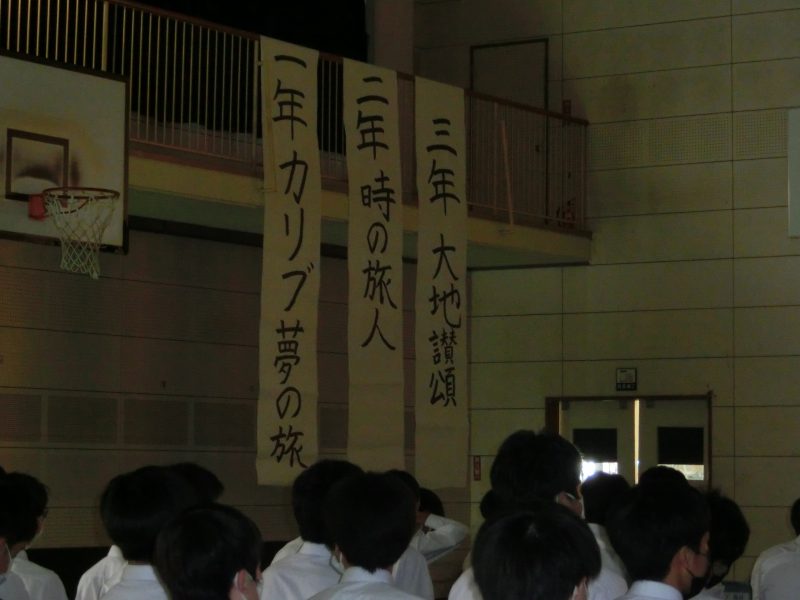 三年 大地讃頌
二年 時の旅人
一年 カリブ夢の旅